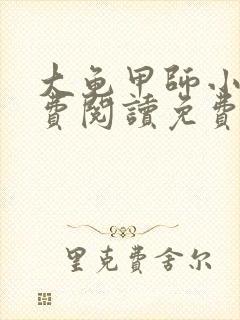 大龟甲師小
費閱讀免費
里克費舍尔